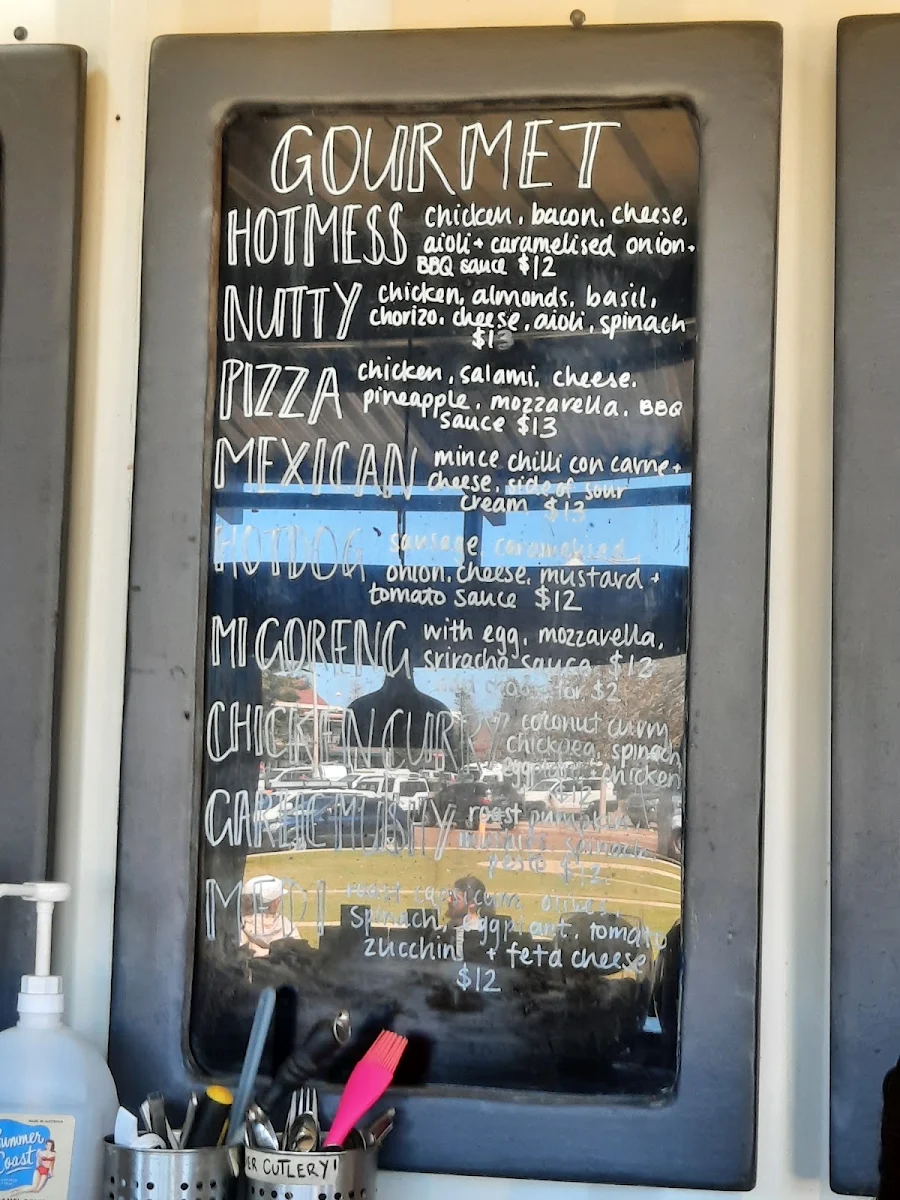 GOURMET
HOTMESS chicken, bacon, cheese,
aioli + caramelised onion +
BBQ sauce $12
NUTTY chicken, almonds, basil,
chorizo, cheese, aioli, spinach
$13
PIZZA chicken, salami, cheese,
pineapple, mozzarella, BBQ
sauce $13
MEXICAN mince chilli con carne +
cheese, side of sour
cream $13
HOTDOG sausage, caramelised
onion, cheese, mustard +
tomato sauce $12
MI GORENG with egg, mozzarella,
sriracha sauce $12
for $2
CHICKEN CURRY coconut curry
chickpea, spinach
eggplant + chicken
$12
GARLIC MUSHY roast pumpkin
spinach
pesto $12
MEDI roast capsicum, olives,
spinach, eggplant, tomato,
zucchini + feta cheese
$12
MADE IN AUSTRALIA
Summer
Coast
ER CUTLERY!